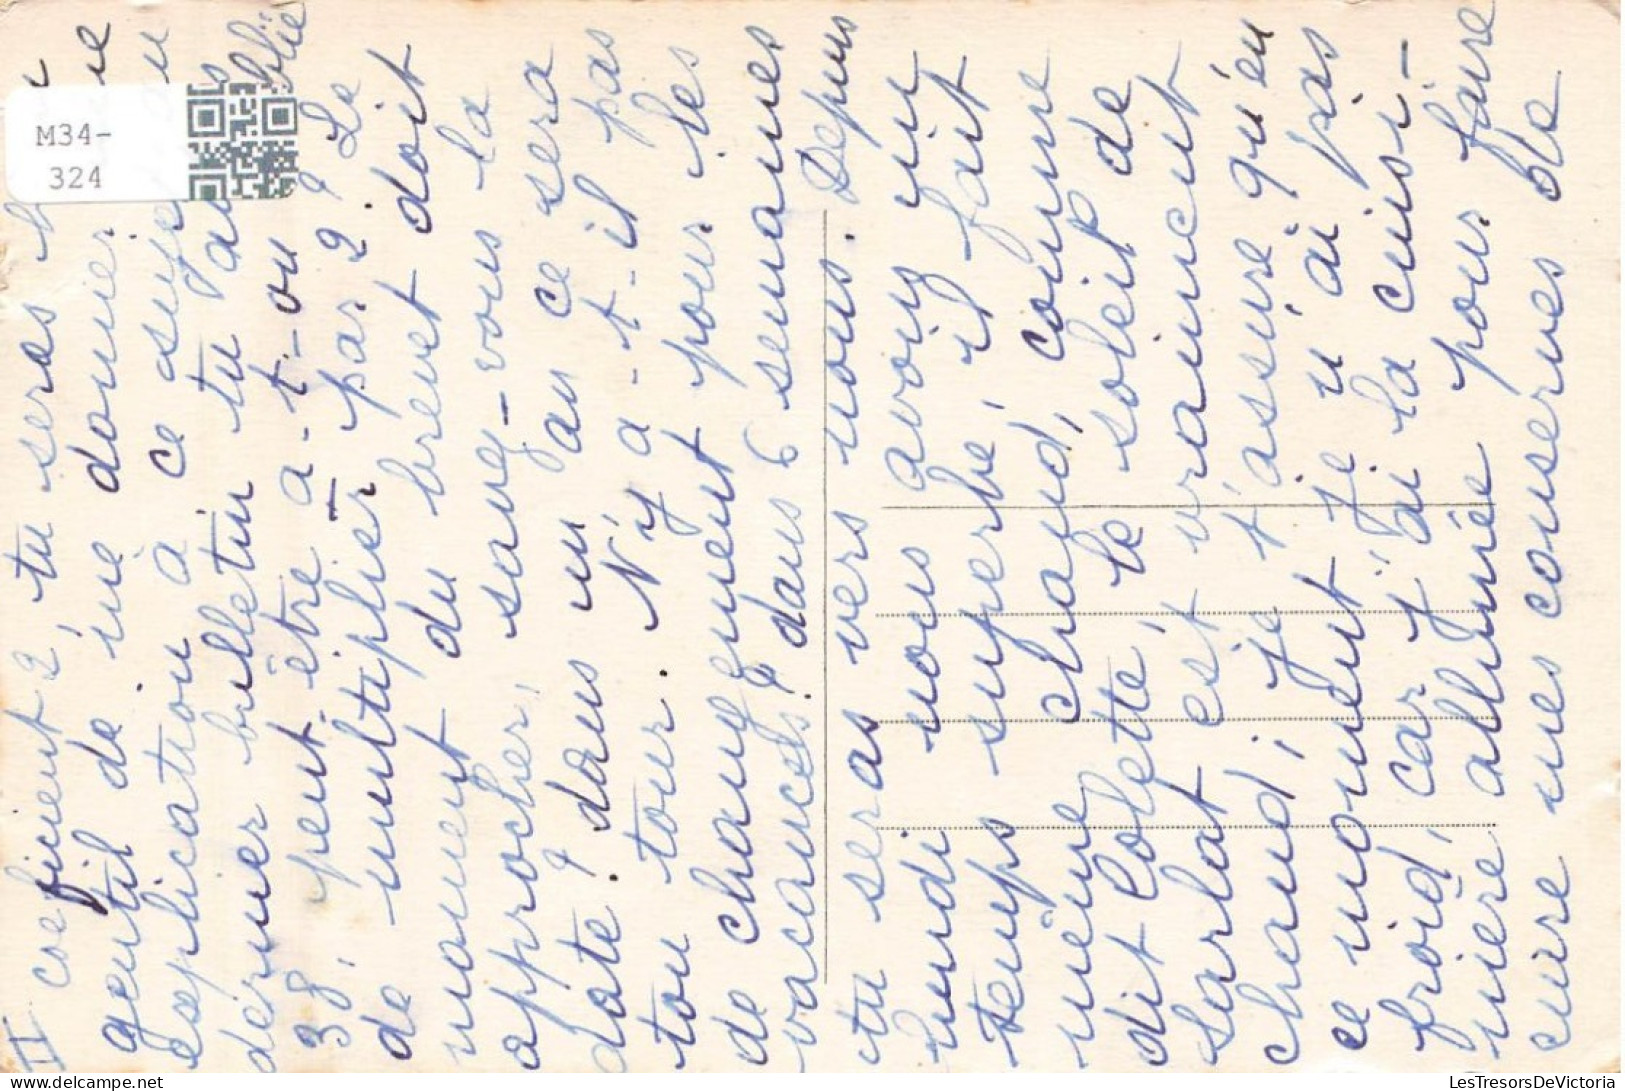 II coeficient 2, tu seras
gentil de mé donner
esplication à ce suje
dernier bulletin tu a
38, peut être a-t-on blié
de multiplier par 2? Le
moment du brevet doit
approcher, sauvez-vous la
date? dans un an ce sera
ton tour. N'y a-t-il pas
de changement pour les
vacances? dans 6 semaines
tu seras vers nous. Depuis
lundi nous avons un
temps superbe, il fait
même chaud, comme
dit Colette, le soleil de
Sarlat est vraiment
chaud; je t'assure qu'én
ce moment je n'ai pas
froid, car j'ai la cuisi-
nière allumée pour faire
cuire mes conserves de
M34-
324
delcampe.net
LesTresorsDeVictoria